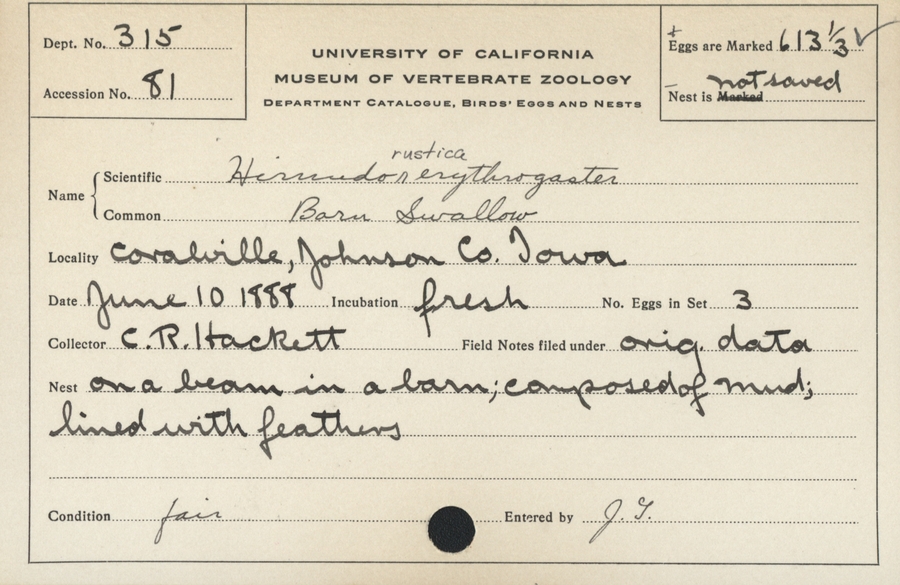 Dept. No. 315
Accession No. 81
UNIVERSITY OF CALIFORNIA
MUSEUM OF VERTEBRATE ZOOLOGY
DEPARTMENT CATALOGUE, BIRDS' EGGS AND NESTS
Eggs are Marked 613 1/3 ✓
not saved
Nest is Marked
rustica
Name { Scientific Hirundo erythrogaster
Common Barn Swallow
Locality Coralville, Johnson Co. Iowa
Date June 10 1888 Incubation fresh No. Eggs in Set 3
Collector C. R. Hackett Field Notes filed under orig. data
Nest on a beam in a barn; composed of mud;
lined with feathers
Condition fair Entered by J. G.